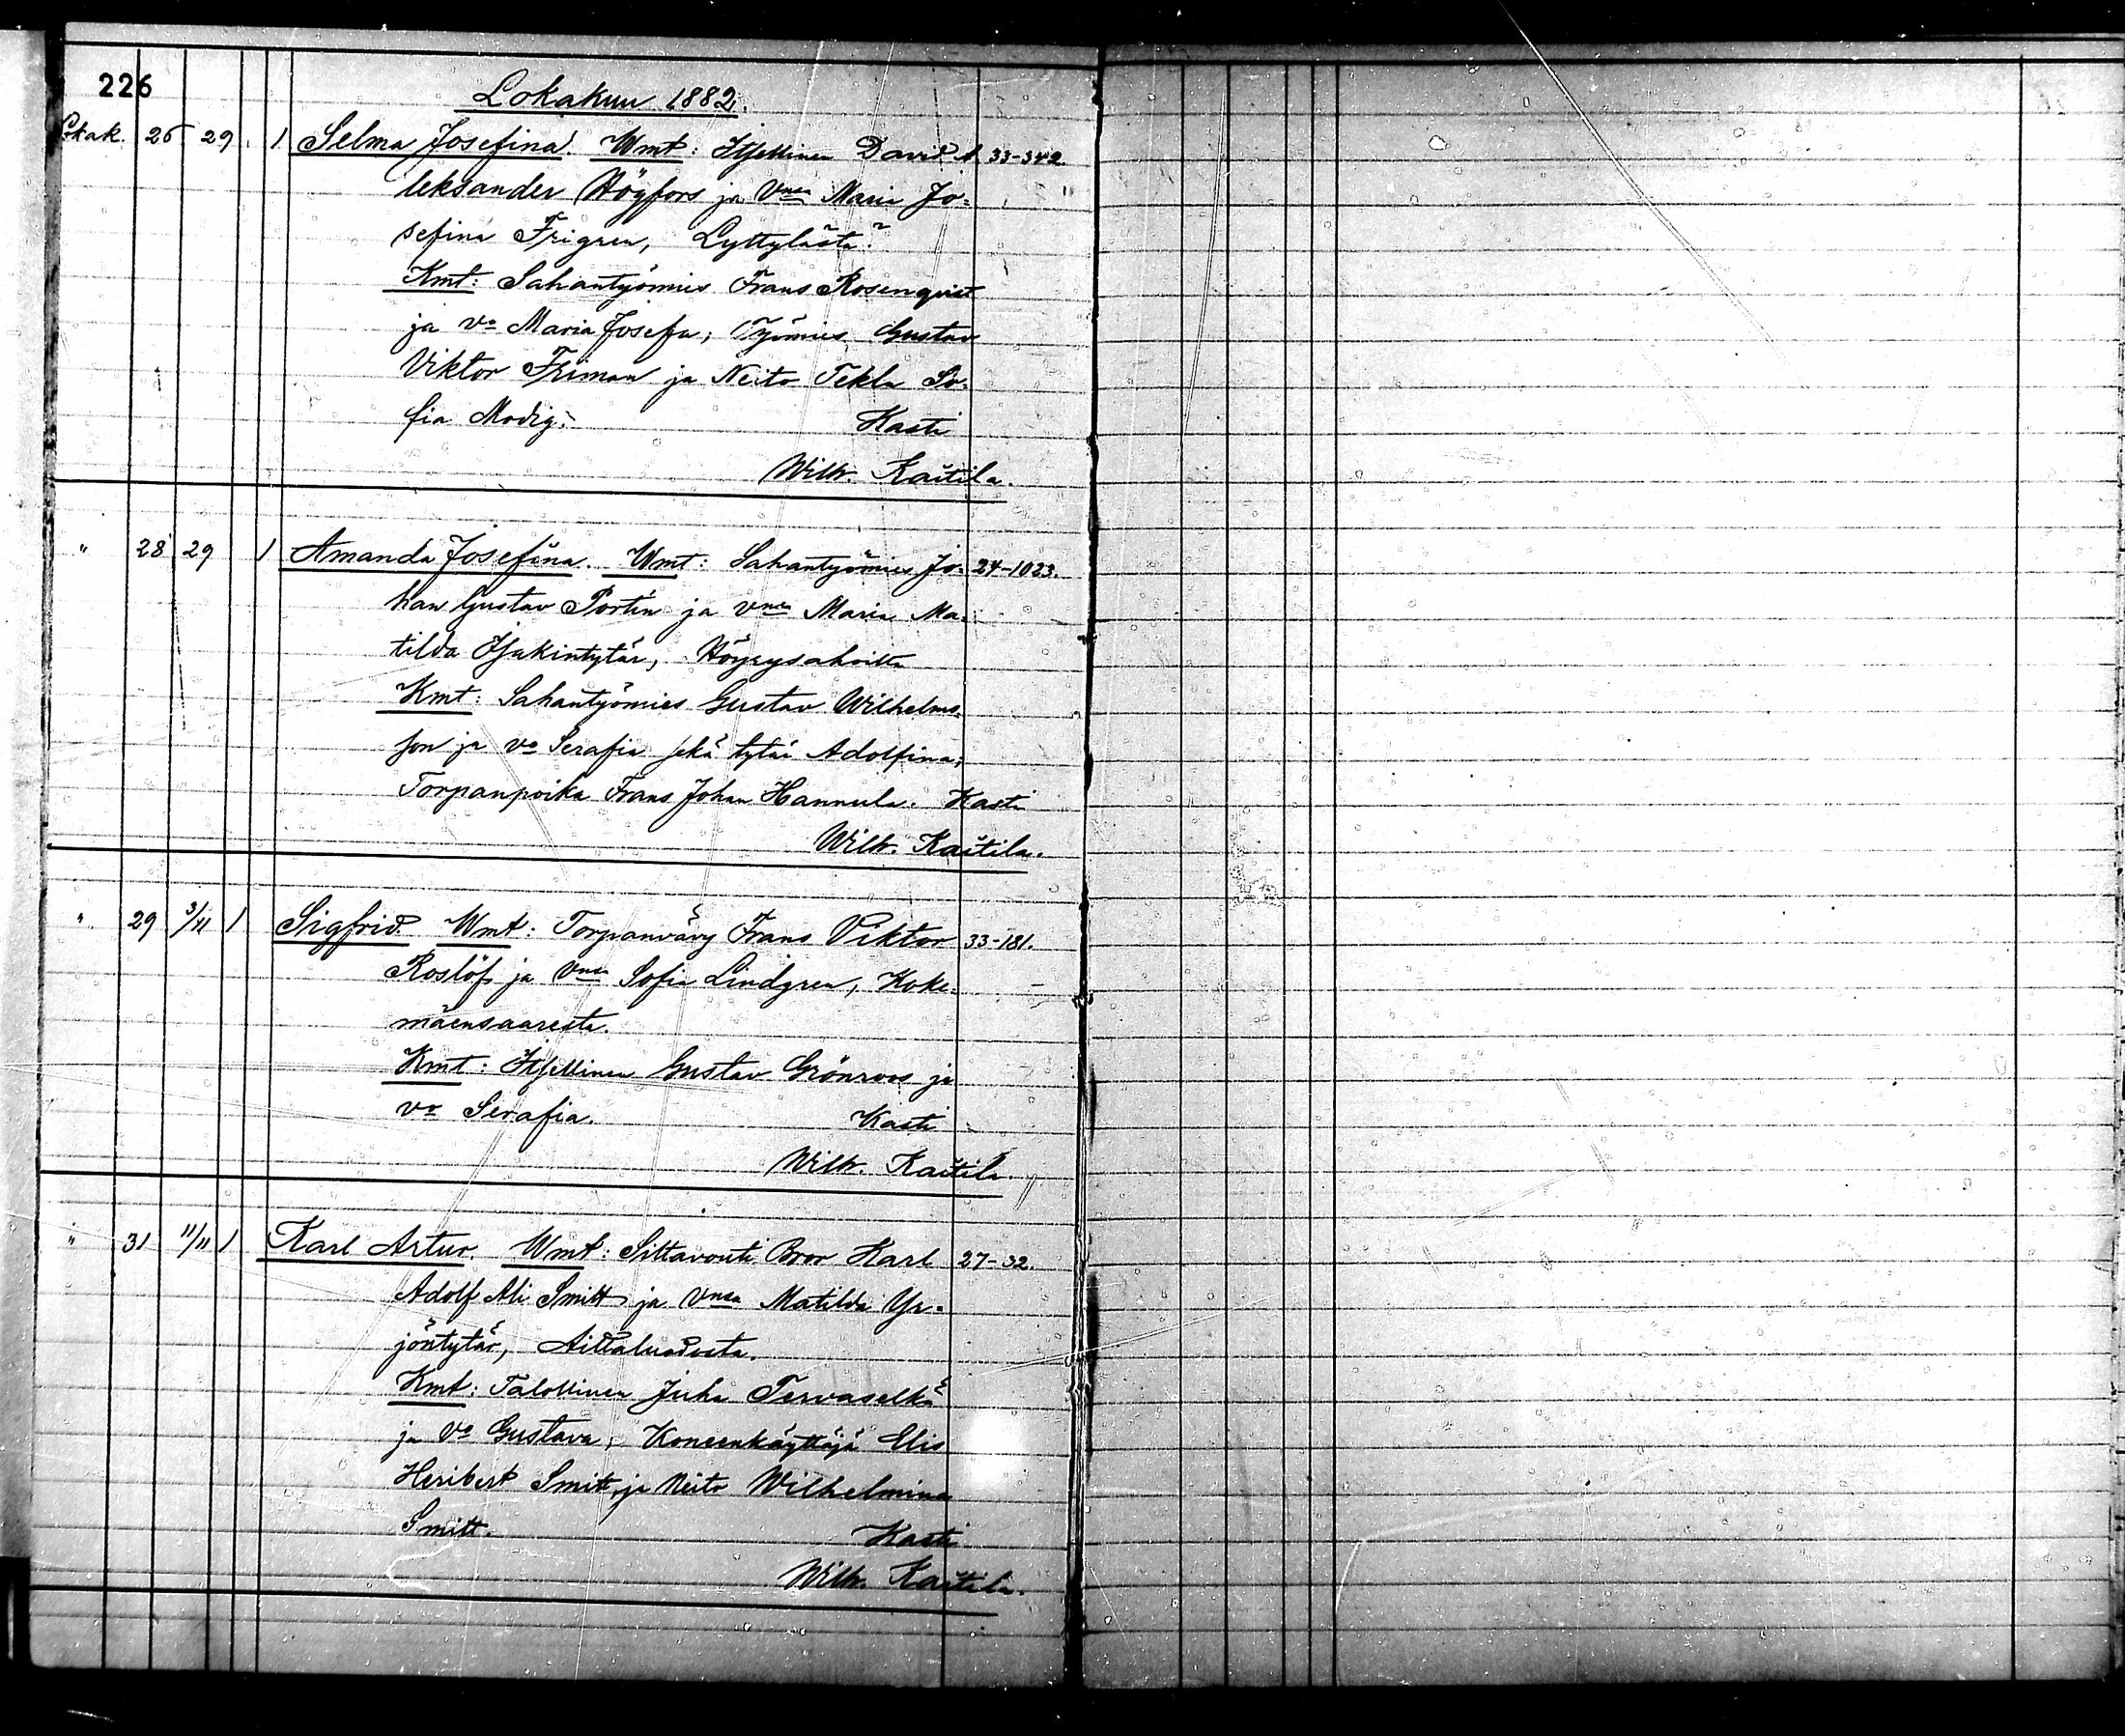 226
Lokakuu 1882.
Lokak. 26 29. 1 Selma Josefina. Wmt: Itsellinen David A- 33-342.
leksander Högfors ja Vnsa Maria Jo-
sefina Frigren, Lyttylästä.
Kmt: Sahantyömies Frans Rosenqvist
ja Vo Maria Josefa; Työmies Gustav
Viktor Friman ja Neito Tekla So-
fia Modig. Kasti
Wilh. Kaitila.
" 28 29 1 Amanda Josefina. Wmt: Sahantyömies Jo- 24-1023.
han Gustav Portin ja vnsa Maria Ma-
tilda Isakintytär, Höyrysahoilta
Kmt: Sahantyömies Gustav Wilhelms-
son ja vo Serafia sekä tytär Adolfina;
Torpanpoika Frans Johan Hannula. Kasti
Wilh. Kaitila.
" 29 3/11 1 Sigfrid. Wmt: Torpanvävy Frans Viktor 33-181.
Roslöf ja Vnsa Sofia Lindgren, Koke-
mäensaaresta.
Kmt: Itsellinen Gustav Grönroos ja
vo Serafia. Kasti
Wilh. Kaitila.
" 31 11/11 1 Karl Artur. Wmt: Siltavouti Bror Karl 27-32.
Adolf Ali Smitt ja Vnsa Matilda Yr-
jöntytär, Aittaluodosta.
Kmt: Talollinen Juha Tervaselkä
ja Vo Gustava; Koneenkäyttäjä Elis
Heribert Smitt, ja Neito Wilhelmina
Smitt. Kasti
Wilh. Kaitila.